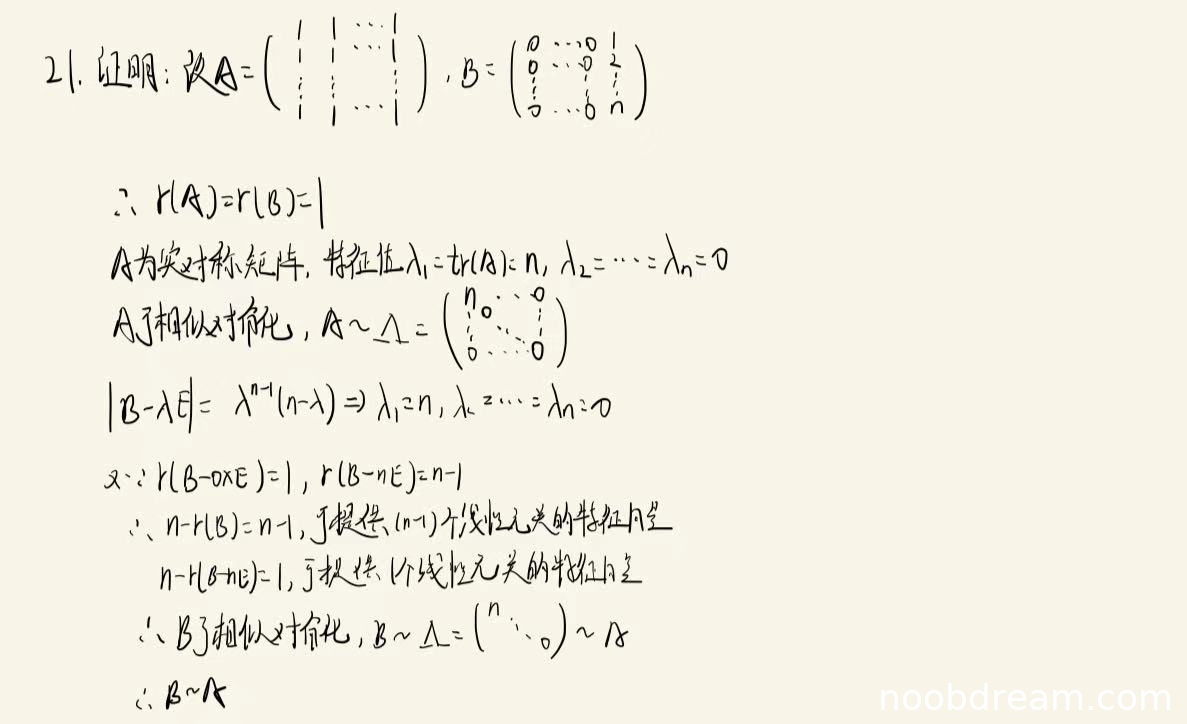 21. 证明: 设A=(1 1 ⋯ 1; 1 1 ⋯ 1; ⋮ ⋮ ⋮; 1 1 ⋯ 1), B=(0 ⋯ 0 1; 0 ⋯ 0 2; ⋮ ⋮ ⋮; 0 ⋯ 0 n)
∴ r(A)=r(B)=1
A为实对称矩阵, 特征值λ₁=tr(A)=n, λ₂=⋯=λn=0
A可相似对角化, A~Λ=(n ⋯ 0; ⋮ 0 ⋱ ⋮; 0 ⋯ 0)
|B-λE|= λⁿ⁻¹(n-λ)⇒λ₁=n, λ₂=⋯=λn=0
又∵r(B-0×E)=1, r(B-nE)=n-1
∴ n-r(B)=n-1, 可提供(n-1)个线性无关的特征向量
n-r(B-nE)=1, 可提供1个线性无关的特征向量
∴ B可相似对角化, B~Λ=(n ⋱ 0)~A
∴ B~A
noobdream.com